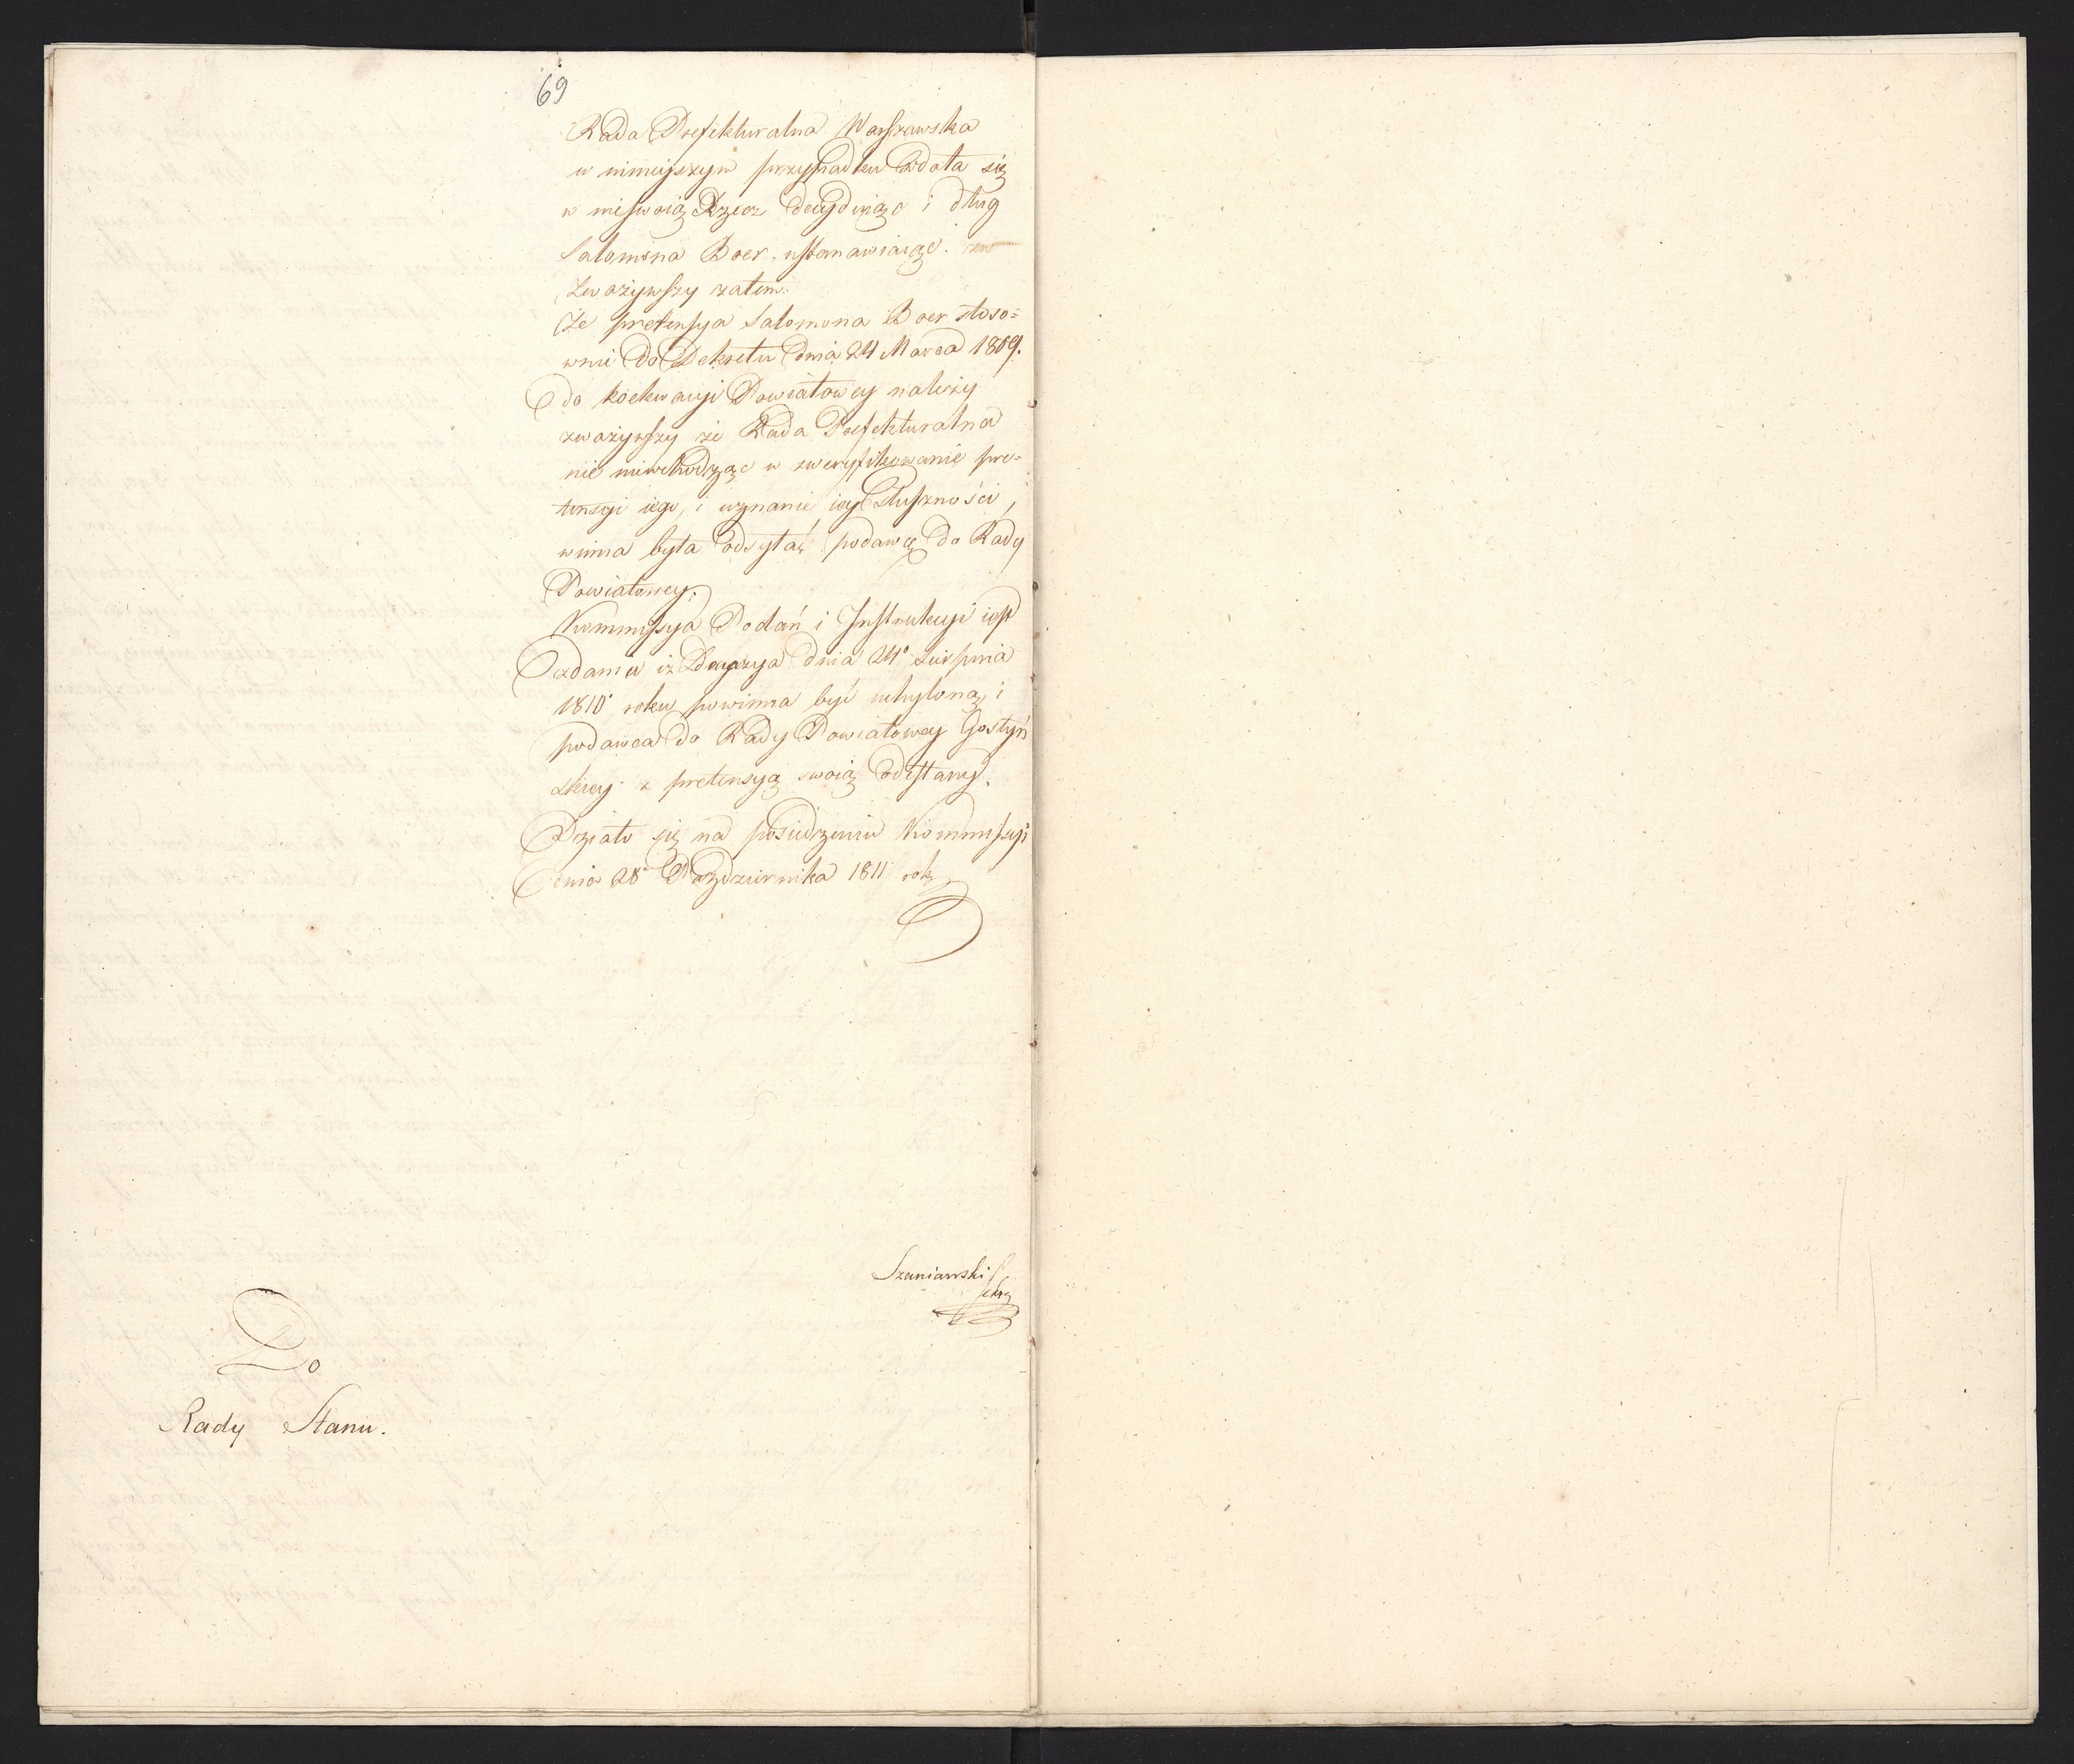 69
Rada Prefekturalna Warszawska
w ninieyszym przypadku wdała się
w nieswoią Rzecz decyduiąc i dług
Salomona Boer, ustanawiaiąc.
Zważywszy zatem.
Że pretensya Salomona Boer stoso=
wnie do Dekretu dnia 24 Marca 1809.
do koekwacyi Powiatowey należy
zważywszy że Rada Prefekturalna
nie niewchodząc w zweryfikowanie pre=
tensyi iego, i uznanie iey słuszności,
winna była odesłać podawcę do Rady
Powiatowey.
Kommissya Podań i Instrukcyi iest
zdania iż Decyzya dnia 24° Sierpnia
1810° roku powinna być uchyloną, i
podawca do Rady Powiatowey Gostyń
skiey z pretensyą swoią odesłany.
Działo się na posiedzeniu Kommissyi
dnia 28° Października 1811 roku
Szaniawski
Sekr
Do
Rady Stanu.